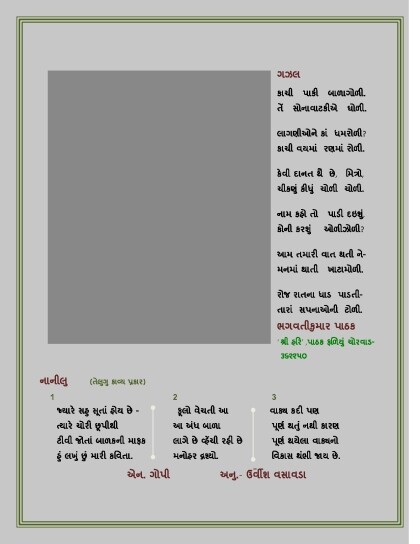 ગઝલ
કાચી પાકી બાળાગોળી.
તેં સોનાવાટકીએ ઘોળી.
લાગણીઓને કાં ધમરોળી?
કાચી વયમાં રણમાં રોળી.
કેવી દાનત થૈ છે, મિત્રો,
ચીકણું કીધું ચોળી ચોળી.
નામ કહો તો પાડી દઇશું,
કોની કરશું ઓળીઝોળી?
આમ તમારી વાત થતી ને-
મનમાં થાતી ખાટામોળી.
રોજ રાતના ધાડ પાડતી-
તારાં સપનાઓની ટોળી.
ભગવતીકુમાર પાઠક
'શ્રી હરિ'.પાઠક ફળિયું ચોરવાડ-
૩૬૨૨૫૦
નાનીલુ (તેલુગુ કાવ્ય પ્રકાર)
1
જ્યારે સહુ સૂતાં હોય છે -
ત્યારે ચોરી છૂપીથી
ટીવી જોતાં બાળકની માફક
હું લખું છું મારી કવિતા.
2
ફૂલો વેચતી આ
આ અંધ બાળા
લાગે છે વ્હેંચી રહી છે
મનોહર દ્રશ્યો.
3
વાક્ય કદી પણ
પૂર્ણ થતું નથી કારણ
પૂર્ણ થયેલા વાક્યનો
વિકાસ થંભી જાય છે.
એન. ગોપી અનુ.- ઉર્વીશ વસાવડા